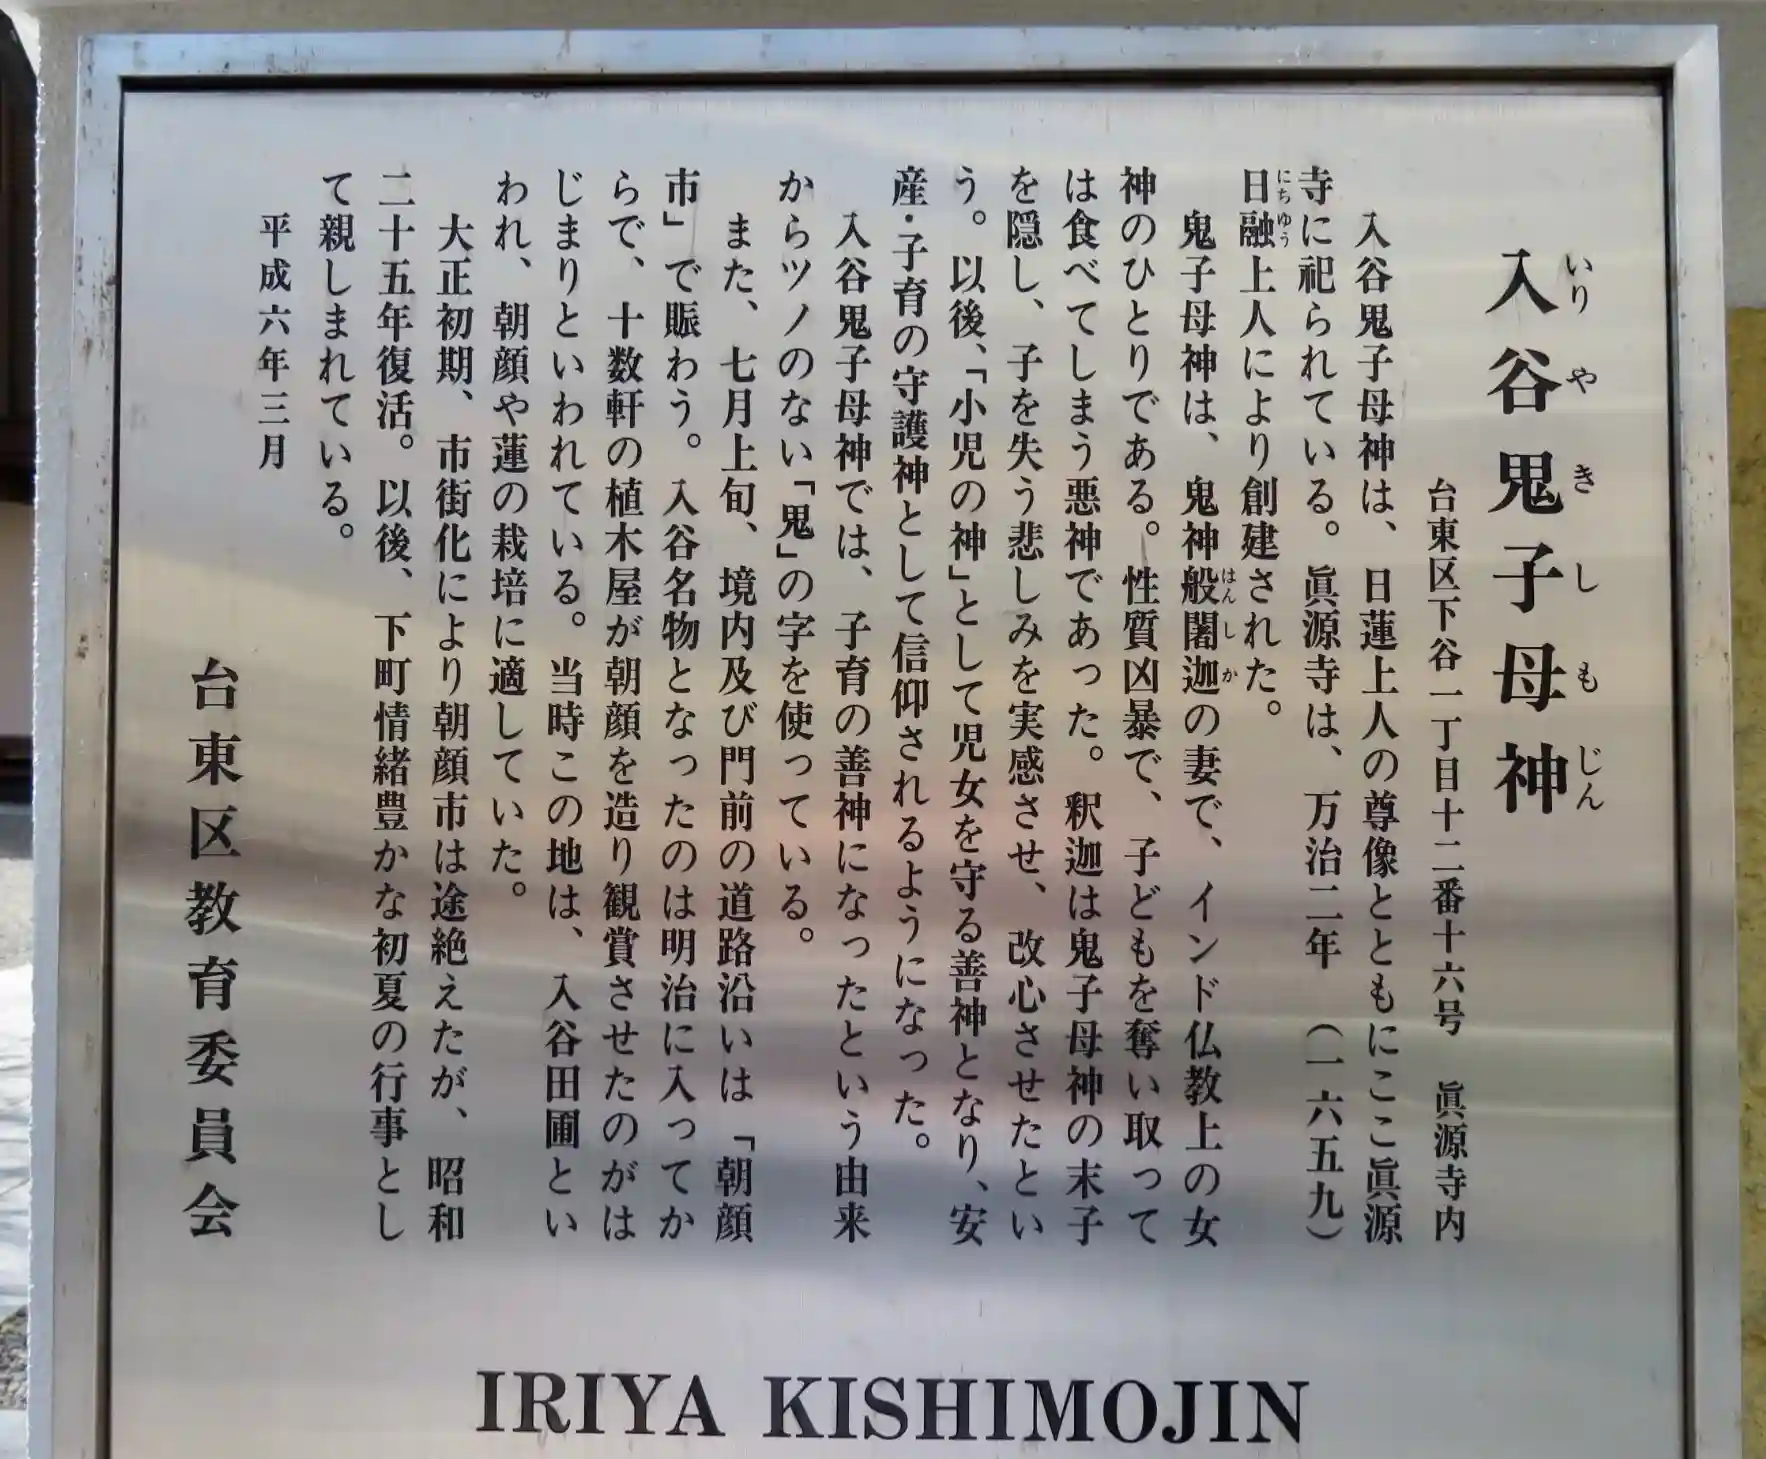 入谷鬼子母神
いりやきしもじん
台東区下谷一丁目十二番十六号　眞源寺内
入谷鬼子母神は、日蓮上人の尊像とともにここ眞源
寺に祀られている。眞源寺は、万治二年（一六五九）
日融上人により創建された。
にちゆう
鬼子母神は、鬼神般闍迦の妻で、インド仏教上の女
はんしか
神のひとりである。性質凶暴で、子どもを奪い取って
は食べてしまう悪神であった。釈迦は鬼子母神の末子
を隠し、子を失う悲しみを実感させ、改心させたとい
う。以後、「小児の神」として児女を守る善神となり、安
産・子育の守護神として信仰されるようになった。
入谷鬼子母神では、子育の善神になったという由来
からツノのない「鬼」の字を使っている。
また、七月上旬、境内及び門前の道路沿いは「朝顔
市」で賑わう。入谷名物となったのは明治に入ってか
らで、十数軒の植木屋が朝顔を造り観賞させたのがは
じまりといわれている。当時この地は、入谷田圃とい
われ、朝顔や蓮の栽培に適していた。
大正初期、市街化により朝顔市は途絶えたが、昭和
二十五年復活。以後、下町情緒豊かな初夏の行事とし
て親しまれている。
平成六年三月
台東区教育委員会
IRIYA KISHIMOJIN